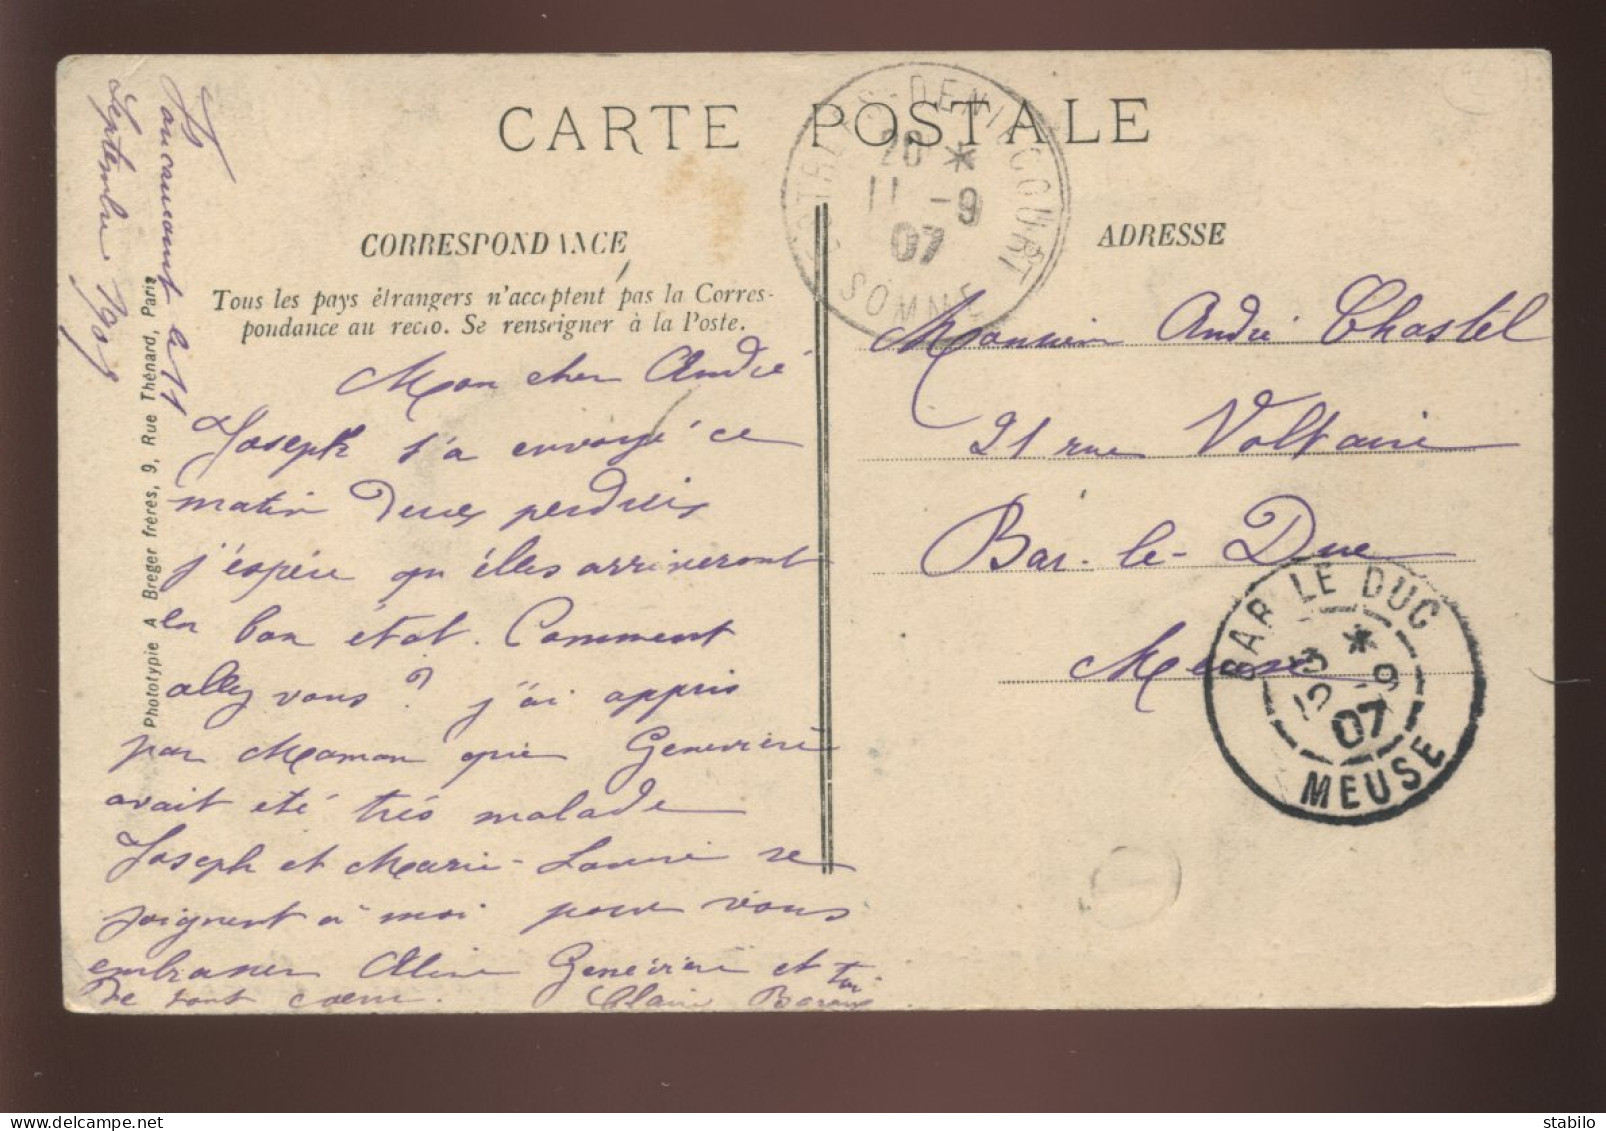 CARTE POSTALE
CORRESPONDANCE
Tous les pays étrangers n'acceptent pas la Corres-
pondance au recto. Se renseigner à la Poste.
ADRESSE
ESTRÉES-DENIÉCOURT
20 *
11 -9
07
SOMME
Faucaucourt le 11
Septembre 1907
Mon cher André
Joseph t'a envoyé ce
matin deux perdrix
j'espère qu'elles arriveront
en bon état. Comment
allez vous? j'ai appris
par Maman que Geneviève
avait été très malade
Joseph et Marie-Louise se
joignent à moi pour vous
embrasser Aline Geneviève et toi
de tout cœur. Claire
Monsieur André Chastel
21 rue Voltaire
Bar-le-Duc
Meuse
BAR LE DUC
*
-9
07
MEUSE
Phototypie A Breger frères, 9, Rue Thénard, Paris
stabilo
delcampe.net